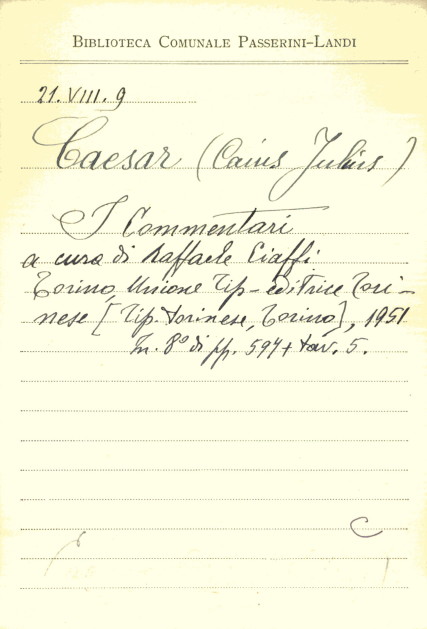 BIBLIOTECA COMUNALE PASSERINI-LANDI
21. VIII. 9
Caesar (Caius Julius)
I Commentari
a cura di Raffaele Ciaffi.
Torino, Unione Tip-editrice Tori-
nese [Tip. torinese, Torino], 1951
In. 8° di pp. 597 + tav. 5.
C